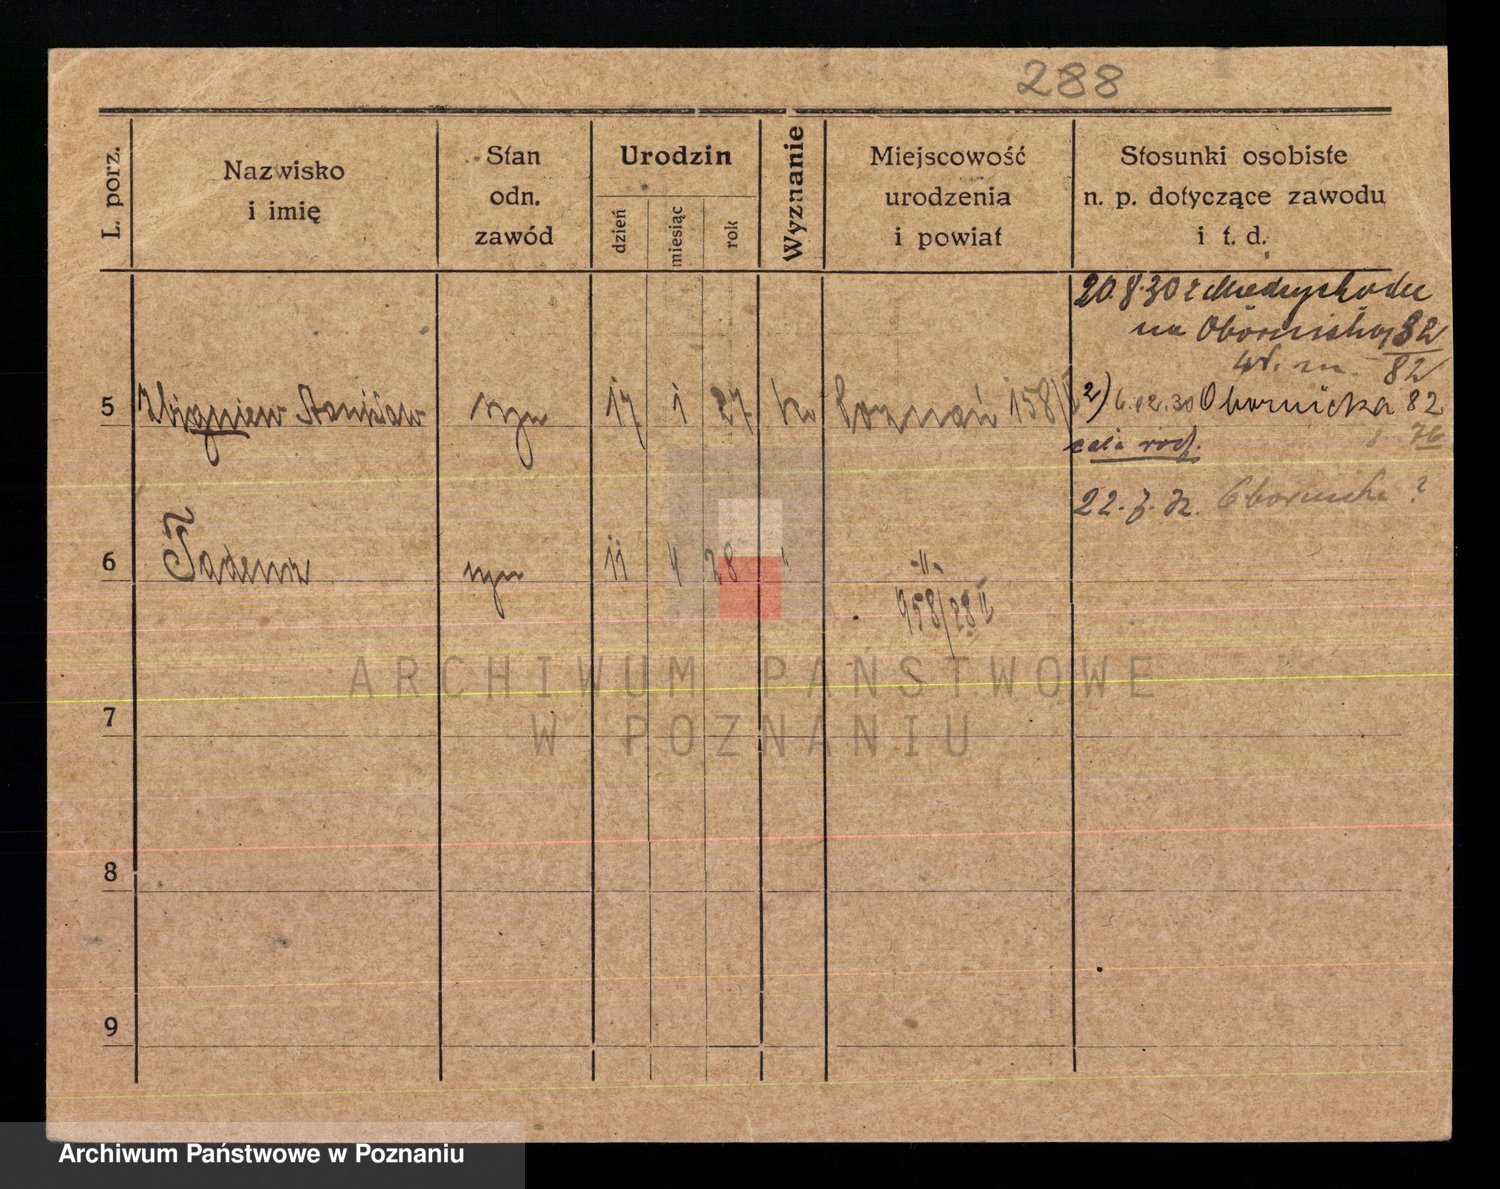 288
L. porz.
Nazwisko
i imię
Stan
odn.
zawód
Urodzin
dzień
miesiąc
rok
Wyznanie
Miejscowość
urodzenia
i powiat
Stosunki osobiste
n. p. dotyczące zawodu
i t. d.
20.8.30 z Międzychodu
na Obornicką 82
82
5 Zbigniew Stanisław syn 17 1 27 Poznań 158/ 2) 6.12.30 Obornicka 82
76
22. 7. 32. Obornicka ?
6 Tadeusz syn 11 4 28 -"-
958/28 II
7
8
9
ARCHIWUM PAŃSTWOWE
W POZNANIU
Archiwum Państwowe w Poznaniu